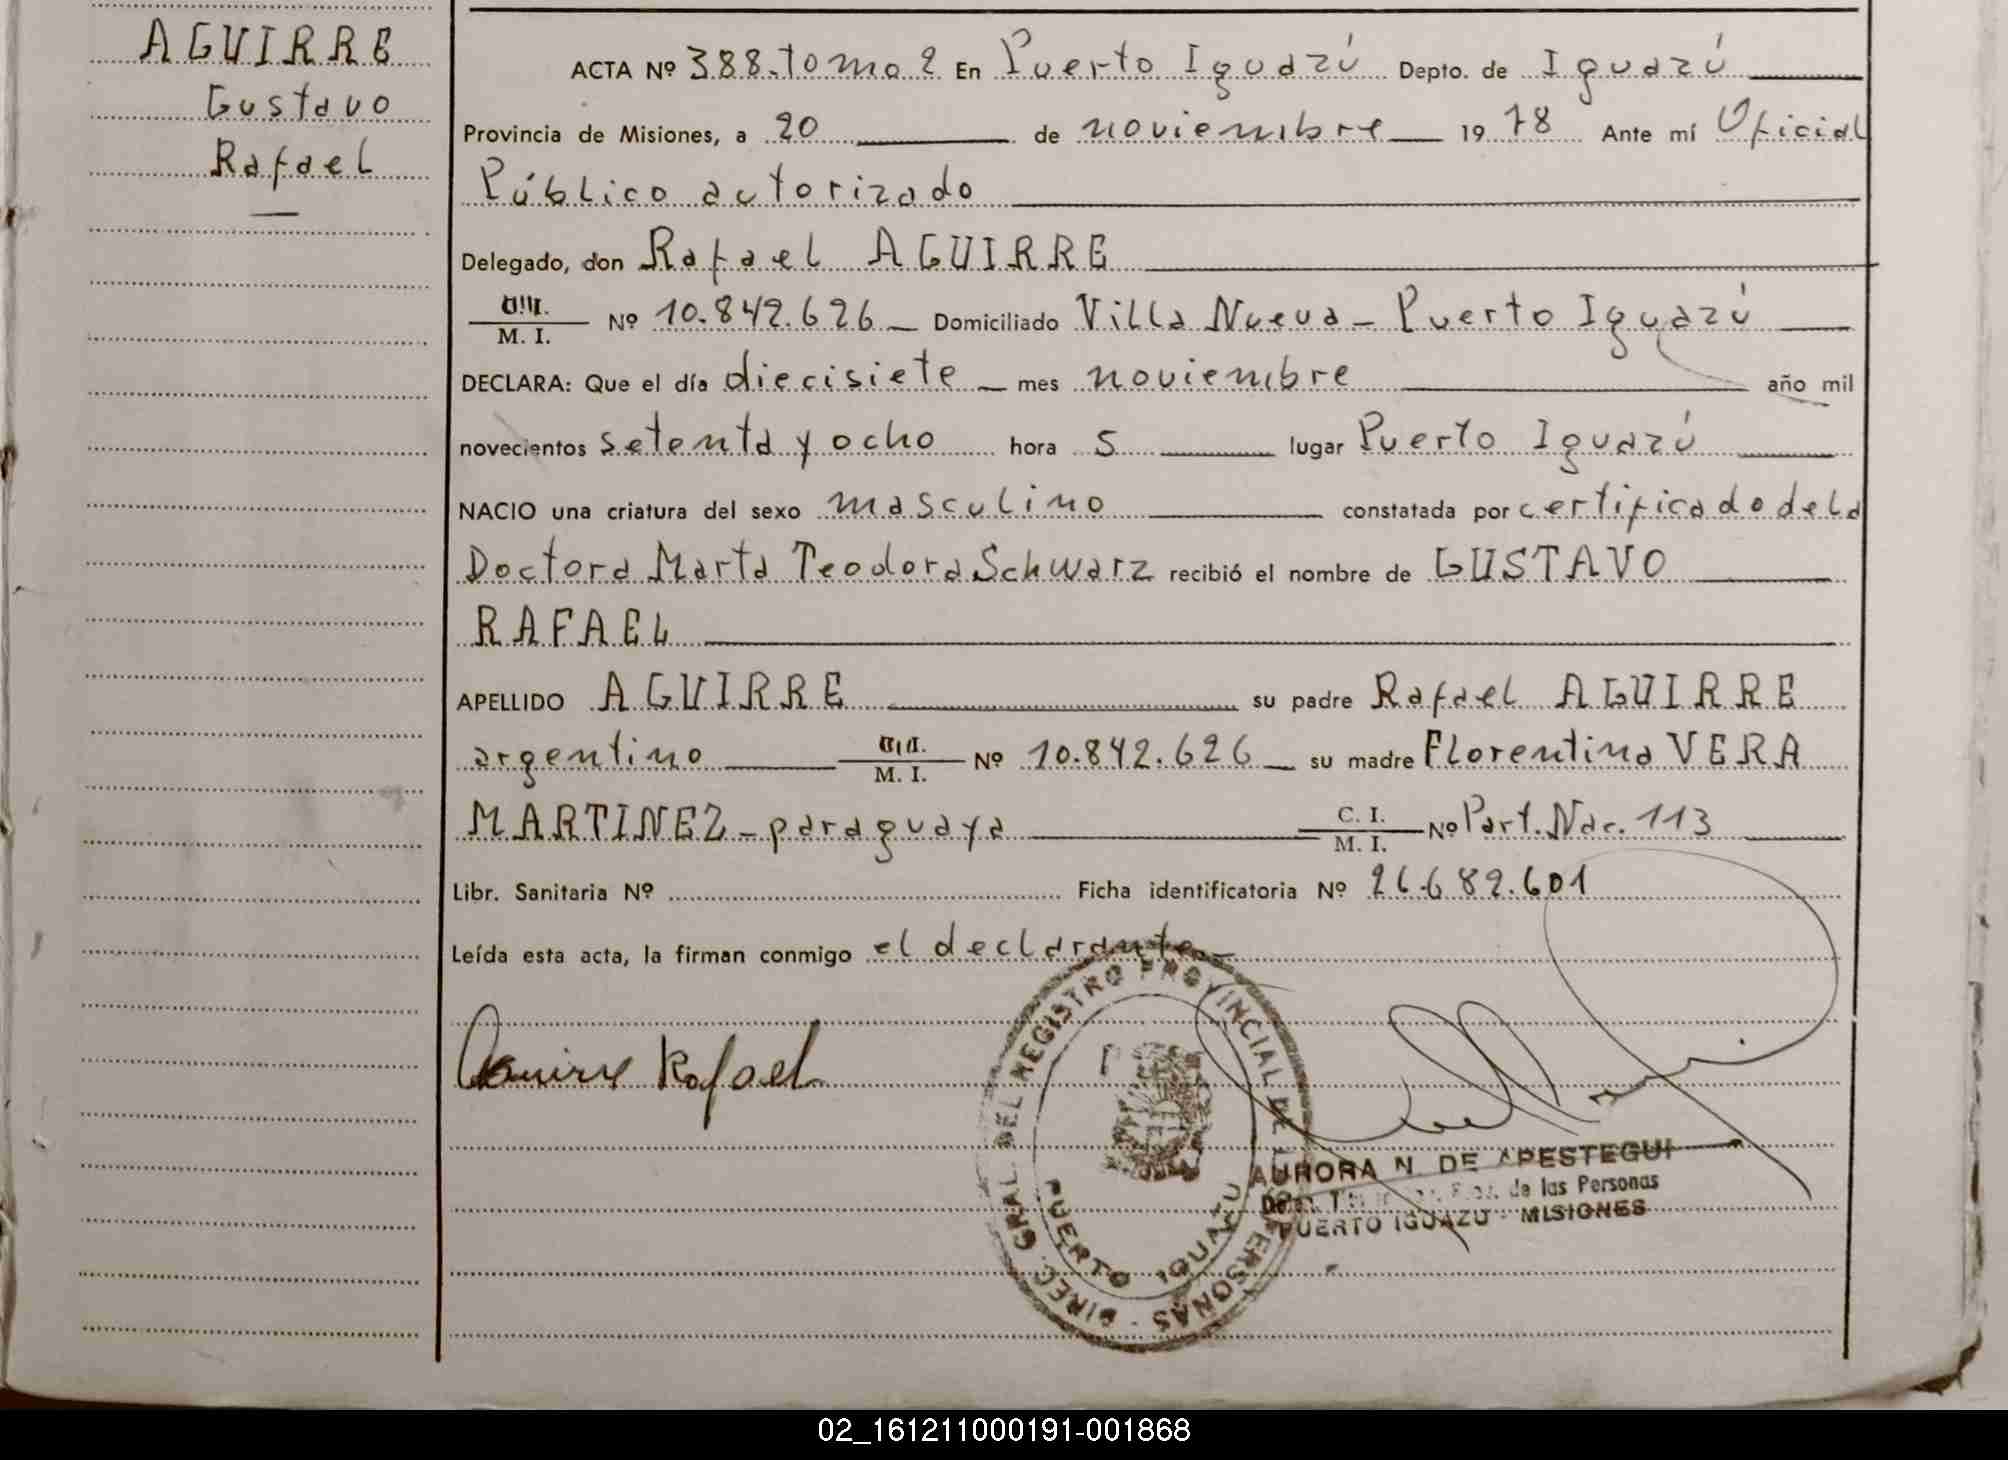 AGUIRRE
Gustavo
Rafael
ACTA Nº 388. tomo 2 En Puerto Iguazú Depto. de Iguazú
Provincia de Misiones, a 20 de noviembre 1978 Ante mí Oficial
Público autorizado
Delegado, don Rafael AGUIRRE
M. I. Nº 10.842.626 Domiciliado Villa Nueva - Puerto Iguazú
DECLARA: Que el día diecisiete mes noviembre año mil
novecientos setenta y ocho hora 5 lugar Puerto Iguazú
NACIO una criatura del sexo masculino constatada por certificado de la
Doctora Marta Teodora Schwarz recibió el nombre de GUSTAVO
RAFAEL
APELLIDO AGUIRRE su padre Rafael AGUIRRE
argentino M. I. Nº 10.842.626 su madre Florentina VERA
MARTINEZ - paraguaya C. I. M. I. Nº Part. Nac. 113
Libr. Sanitaria Nº Ficha identificatoria Nº 26.682.601
Leída esta acta, la firman conmigo el declarante
Aguirre Rafael
DIREC. GRAL. DEL REGISTRO PROVINCIAL DE PERSONAS
PUERTO IGUAZU
AURORA N. DE APESTEGUI
de las Personas
PUERTO IGUAZU - MISIONES
02_161211000191-001868